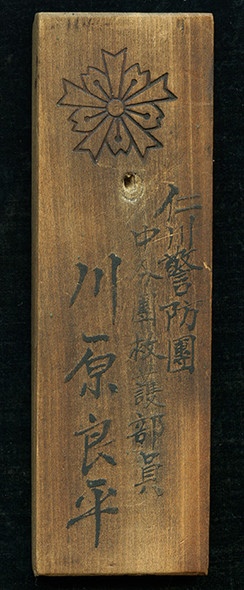 仁川警防團
中分團救護部員
川原良平